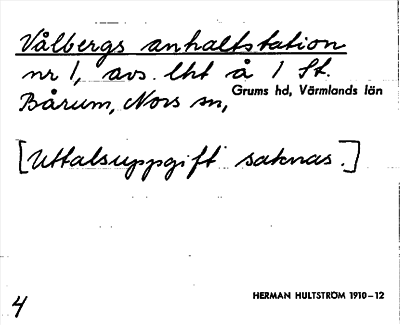 Vålbergs anhaltstation
nr 1, avs. lht å 1 St.
Bårum, Nors sn, Grums hd, Värmlands län
[Uttalsuppgift saknas.]
4
HERMAN HULTSTRÖM 1910–12